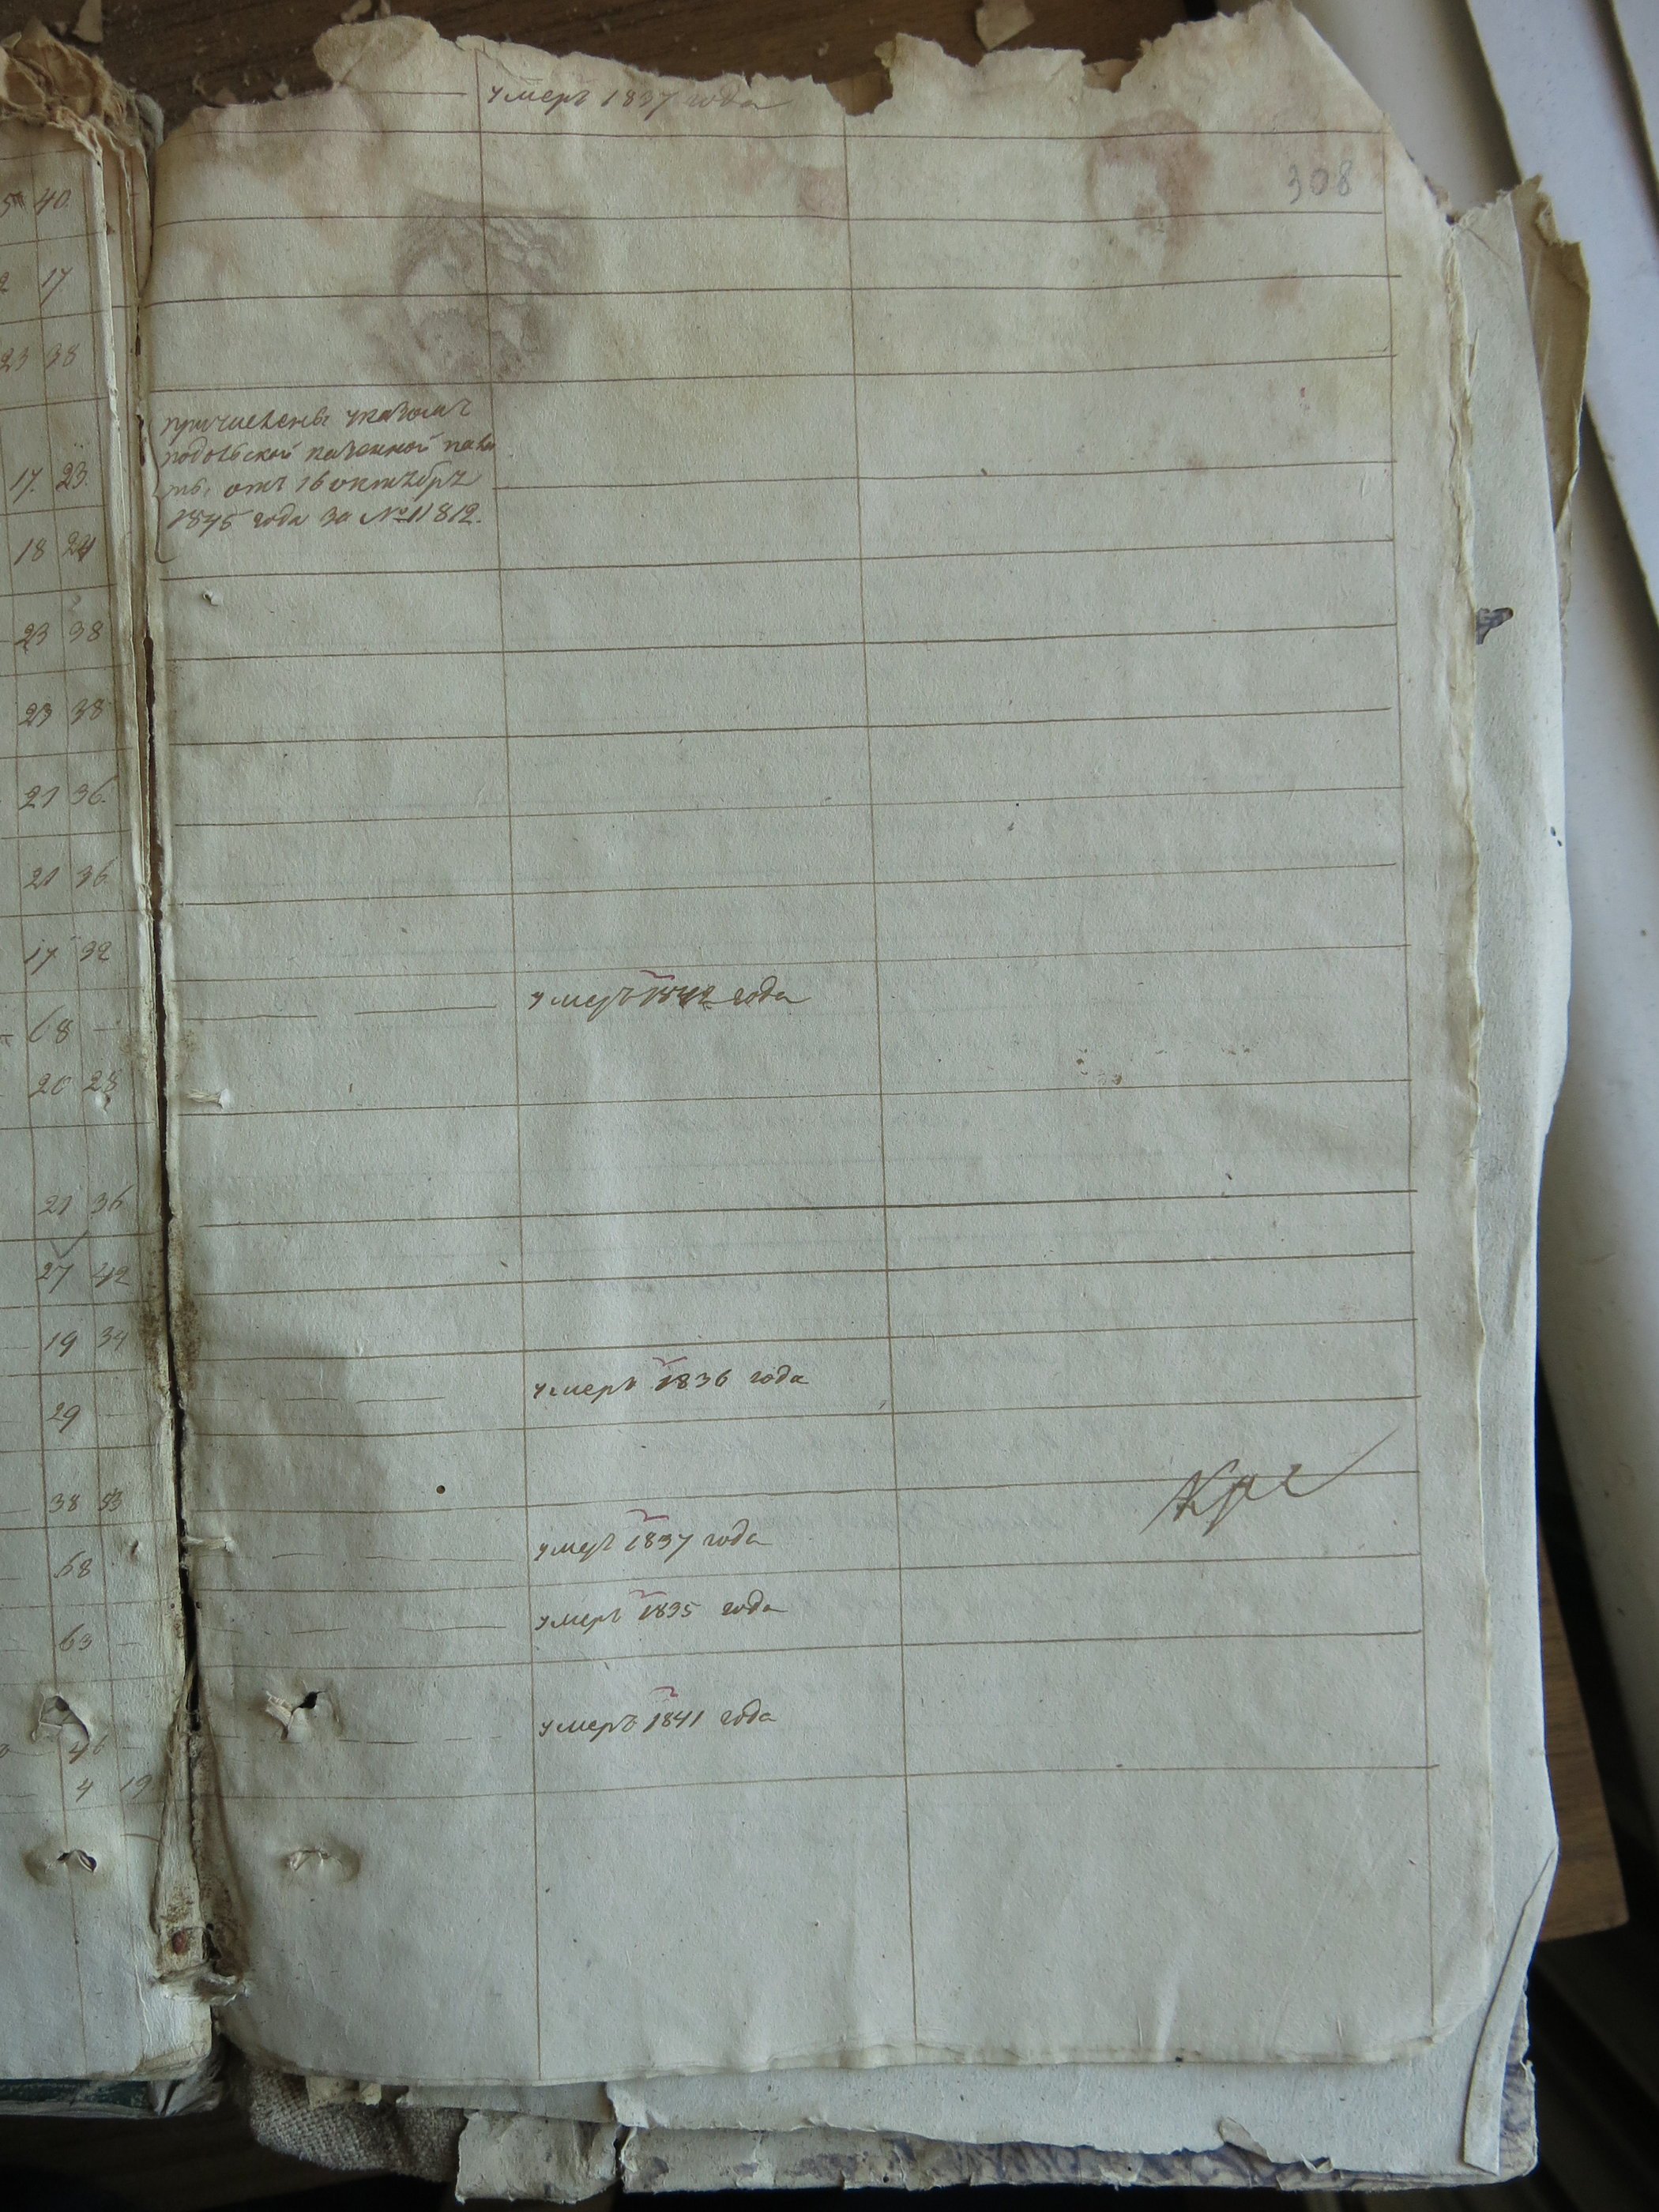 умеръ 1837 года
308
5 40
17
23 38
причислены указомъ
подольской казенной пала
ты, отъ 16 октября
1845 года за № 11812.
17. 23.
18 24
23 38
23 38
21 36.
21 36
17 32
умеръ 1842 года
68 —
20 28
21 36
27 42
19 34
умеръ 1836 года
29 —
38 53
умеръ 1837 года
68
умеръ 1835 года
63 —
умеръ 1841 года
46 —
4 19